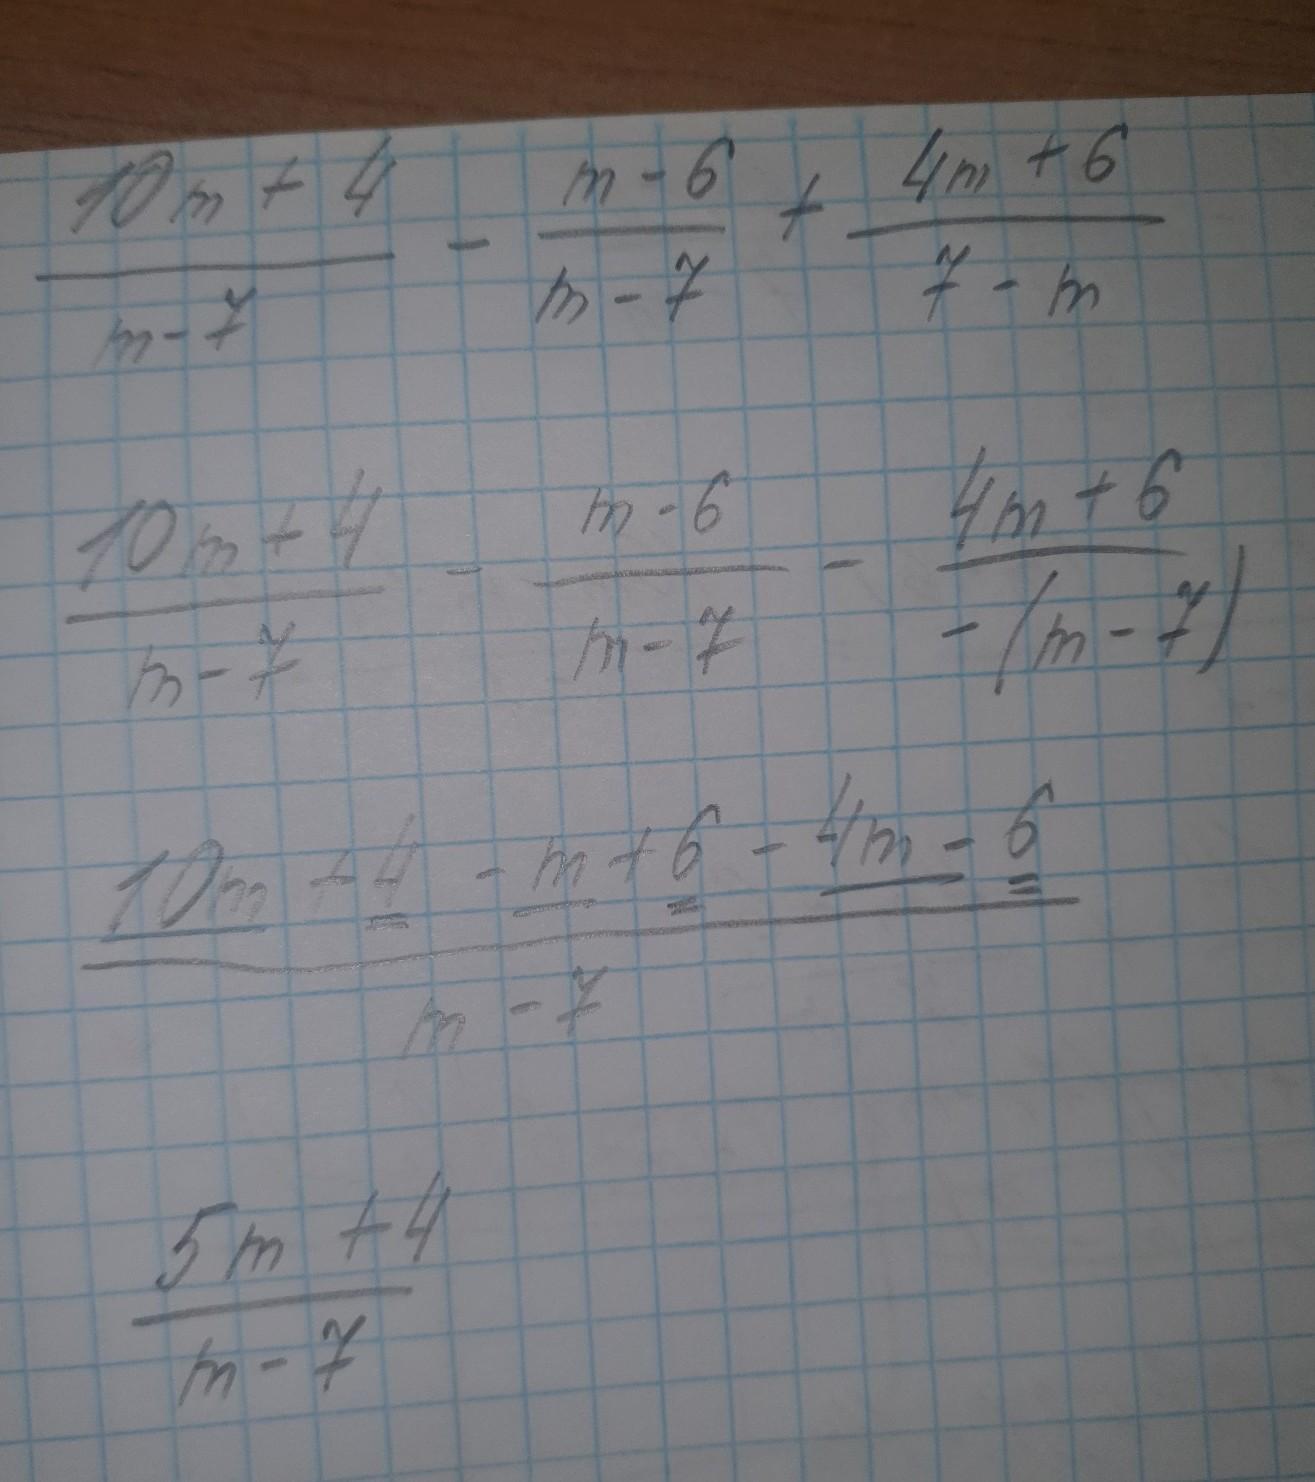 10m + 4 / m - 7 - m - 6 / m - 7 + 4m + 6 / 7 - m
10m + 4 / m - 7 - m - 6 / m - 7 - 4m + 6 / -(m - 7)
10m + 4 - m + 6 - 4m - 6 / m - 7
5m + 4 / m - 7